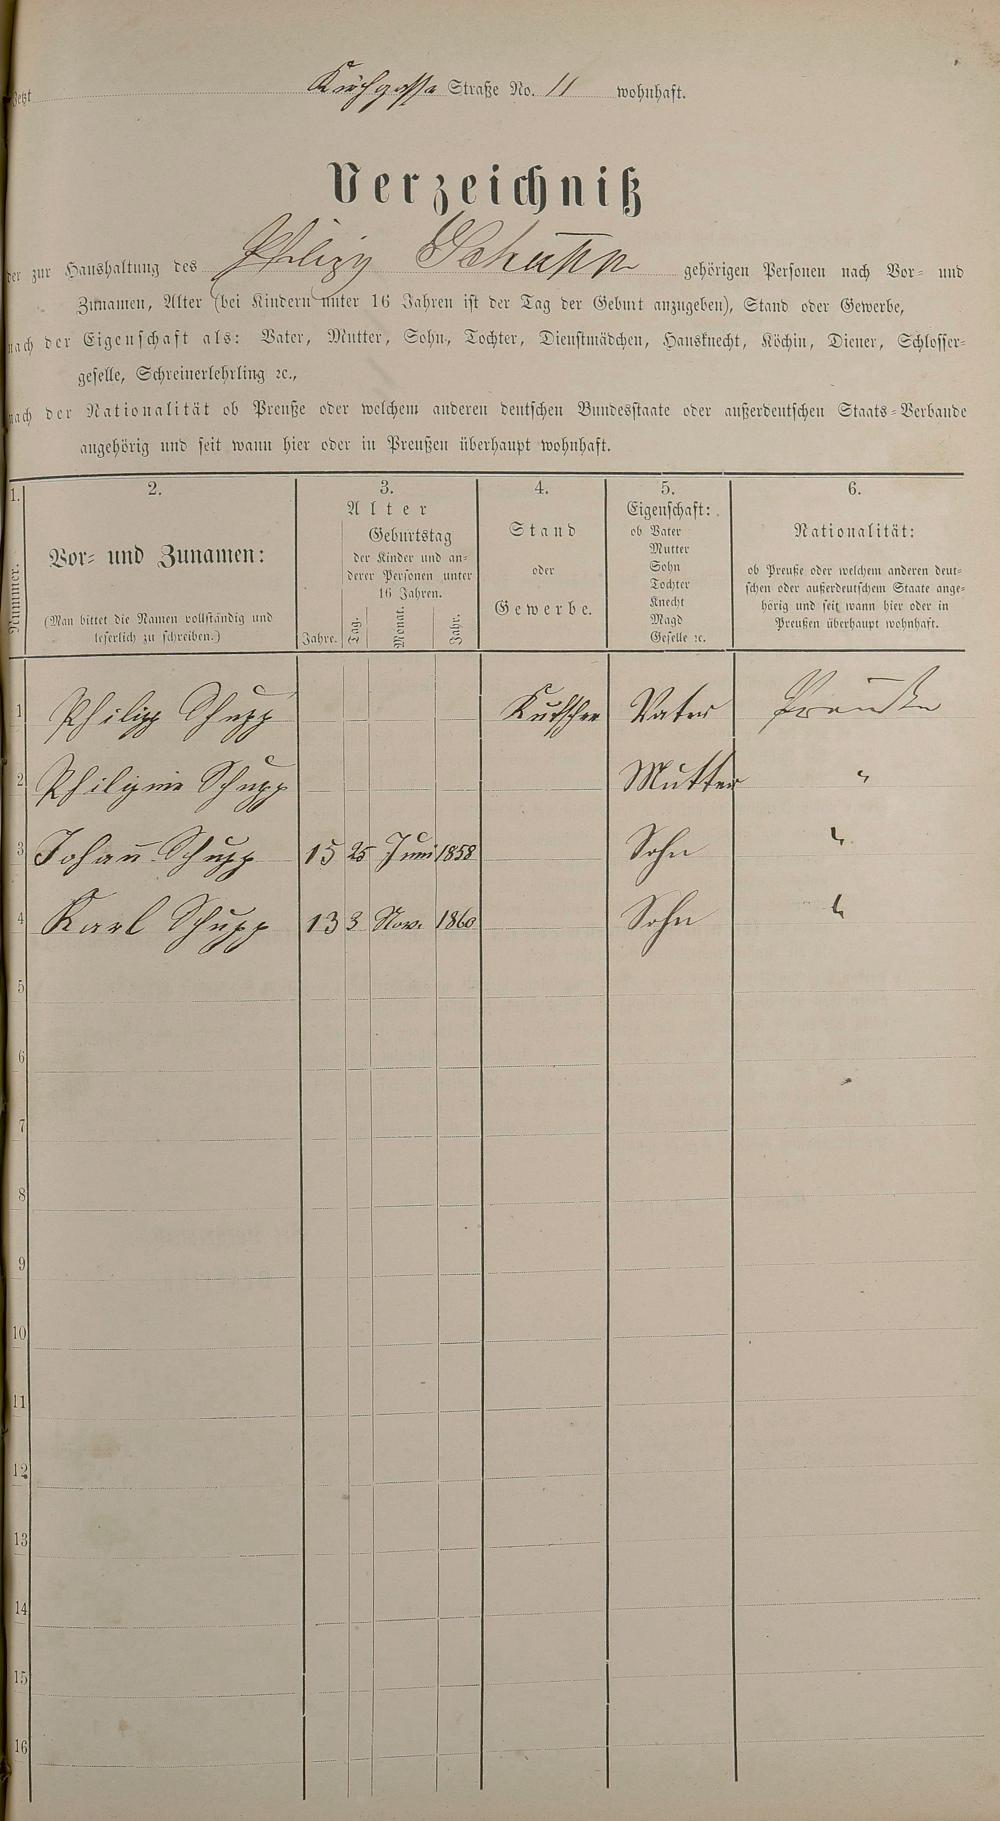 Jetzt Kirchgasse Straße No. 11 wohnhaft.
Verzeichniß
der zur Haushaltung des Philipp Schupp gehörigen Personen nach Vor- und
Zunamen, Alter (bei Kindern unter 16 Jahren ist der Tag der Geburt anzugeben), Stand oder Gewerbe,
nach der Eigenschaft als: Vater, Mutter, Sohn, Tochter, Dienstmädchen, Hausknecht, Köchin, Diener, Schlosser-
geselle, Schreinerlehrling ꝛc.,
nach der Nationalität ob Preuße oder welchem anderen deutschen Bundesstaate oder außerdeutschen Staats-Verbande
angehörig und seit wann hier oder in Preußen überhaupt wohnhaft.
1. 2. 3. 4. 5. 6.
Nummer.
Vor- und Zunamen:
(Man bittet die Namen vollständig und
leserlich zu schreiben.)
Alter
Geburtstag
der Kinder und an-
derer Personen unter
16 Jahren.
Jahre. Tag. Monat. Jahr.
Stand
oder
Gewerbe.
Eigenschaft:
ob Vater
Mutter
Sohn
Tochter
Knecht
Magd
Geselle ꝛc.
Nationalität:
ob Preuße oder welchem anderen deut-
schen oder außerdeutschem Staate ange-
hörig und seit wann hier oder in
Preußen überhaupt wohnhaft.
1 Philipp Schupp Kutscher Vater Preuße
2 Philipine Schupp Mutter "
3 Johan̄ Schupp 15 25 Juni 1858 Sohn "
4 Karl Schupp 13 3 Nov. 1860 Sohn "
5
6
7
8
9
10
11
12
13
14
15
16